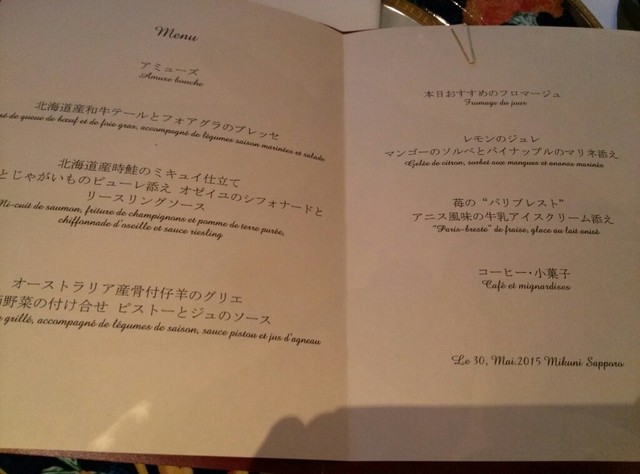 Menu
アミューズ
Amuse bouche
北海道産和牛テールとフォアグラのプレッセ
de queue de bœuf et de foie gras, accompagné de légumes saison marinées et salade
北海道産時鮭のミキュイ仕立て
とじゃがいものピューレ添え オゼイユのシフォナードと
リースリングソース
Mi-cuit de saumon, friture de champignons et pomme de terre purée,
chiffonnade d'oseille et sauce riesling
オーストラリア産骨付仔羊のグリエ
野菜の付け合せ ピストーとジュのソース
grillé, accompagné de légumes de saison, sauce pistou et jus d'agneau
本日おすすめのフロマージュ
Fromage du jour
レモンのジュレ
マンゴーのソルベとパイナップルのマリネ添え
Gelée de citron, sorbet aux mangues et ananas marinée
苺の“パリブレスト”
アニス風味の牛乳アイスクリーム添え
"Paris-breste" de fraise, glace au lait anisé
コーヒー・小菓子
Café et mignardises
Le 30, Mai.2015 Mikuni Sapporo